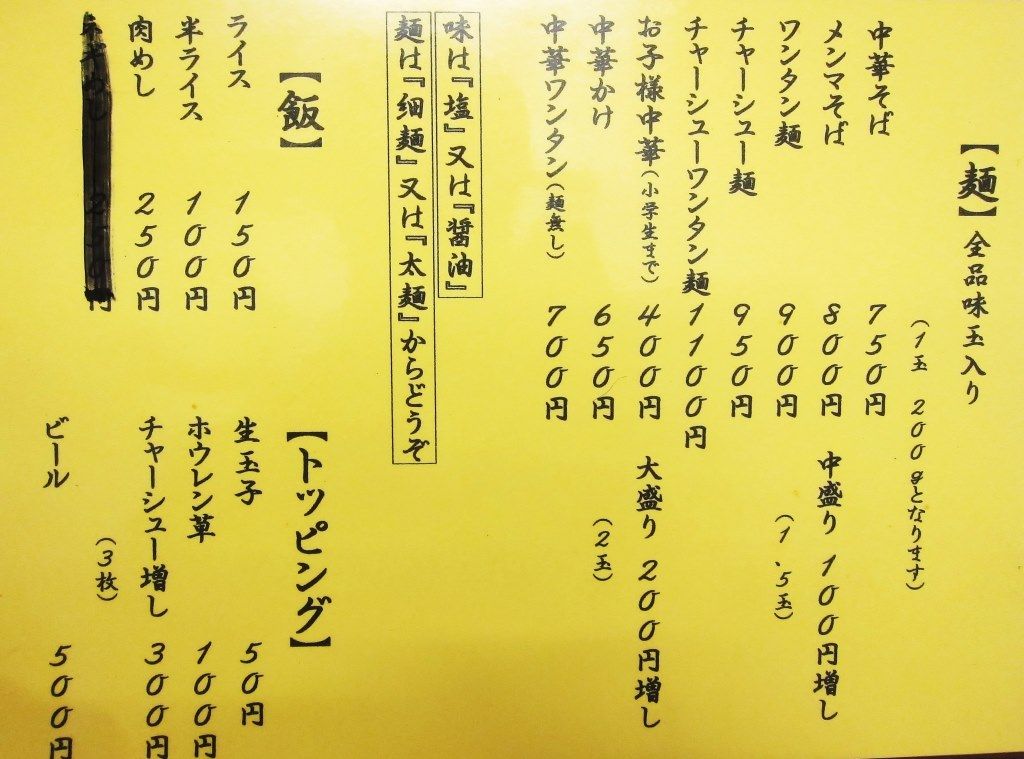 【麺】全品味玉入り
(1玉 200gとなります)
中華そば 750円
メンマそば 800円
ワンタン麺 900円
チャーシュー麺 950円
チャーシューワンタン麺 1100円
お子様中華(小学生まで) 400円
中華かけ 650円
中華ワンタン(麺無し) 700円
中盛り 100円増し
(1.5玉)
大盛り 200円増し
(2玉)
味は『塩』又は『醤油』
麺は『細麺』又は『太麺』からどうぞ
【飯】
ライス 150円
半ライス 100円
肉めし 250円
ネギめし 250円
【トッピング】
生玉子 50円
ホウレン草 100円
チャーシュー増し 300円
(3枚)
ビール 500円